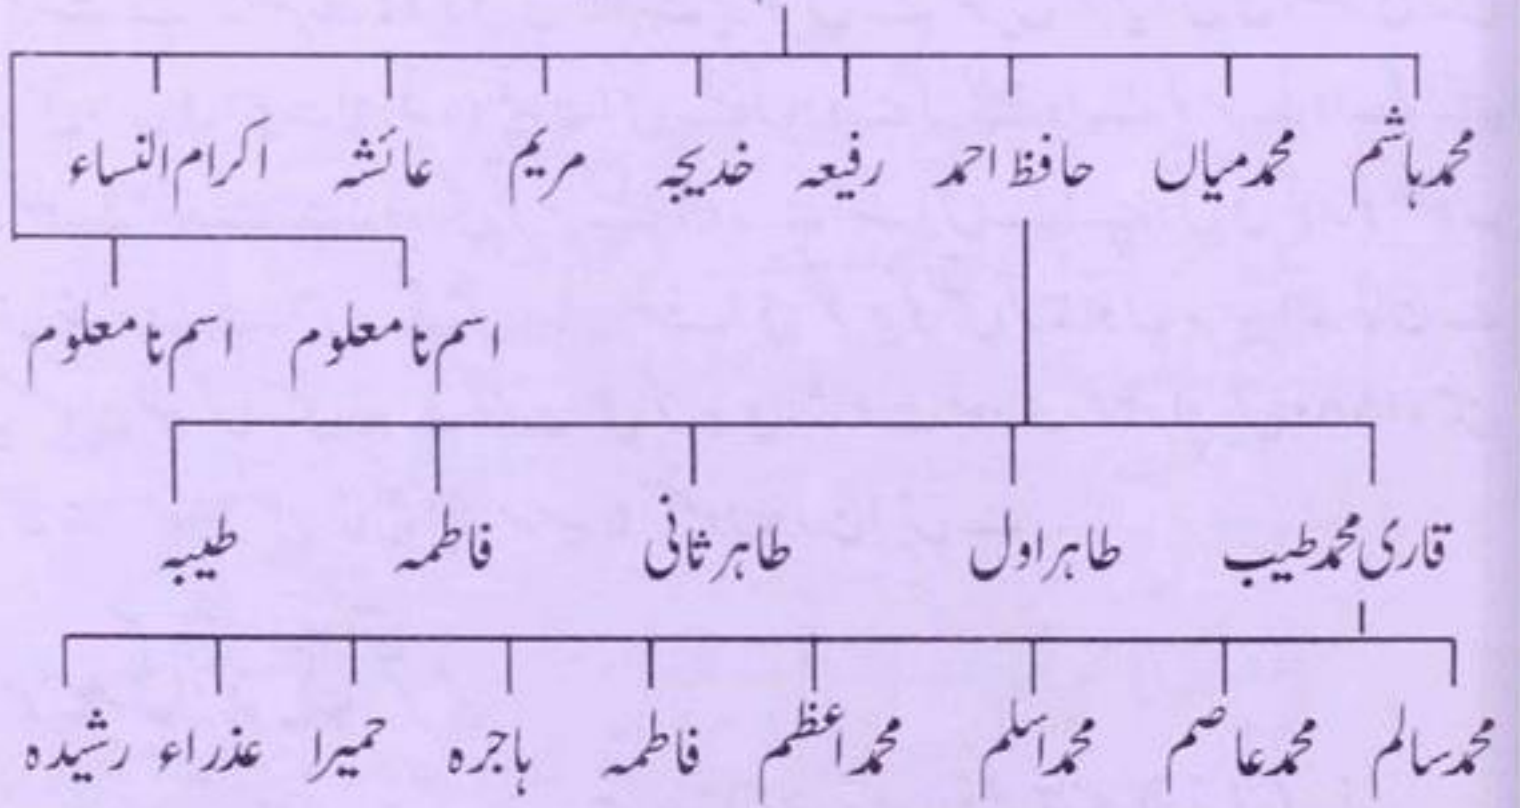 محمد ہاشم محمد میاں حافظ احمد رفیعہ خدیجہ مریم عائشہ اکرام النساء
اسم نا معلوم اسم نا معلوم
قاری محمد طیب طاہر اول طاہر ثانی فاطمہ طیبہ
محمد سالم محمد عاصم محمد اسلم محمد اعظم فاطمہ ہاجرہ حمیرا عذراء رشیدہ